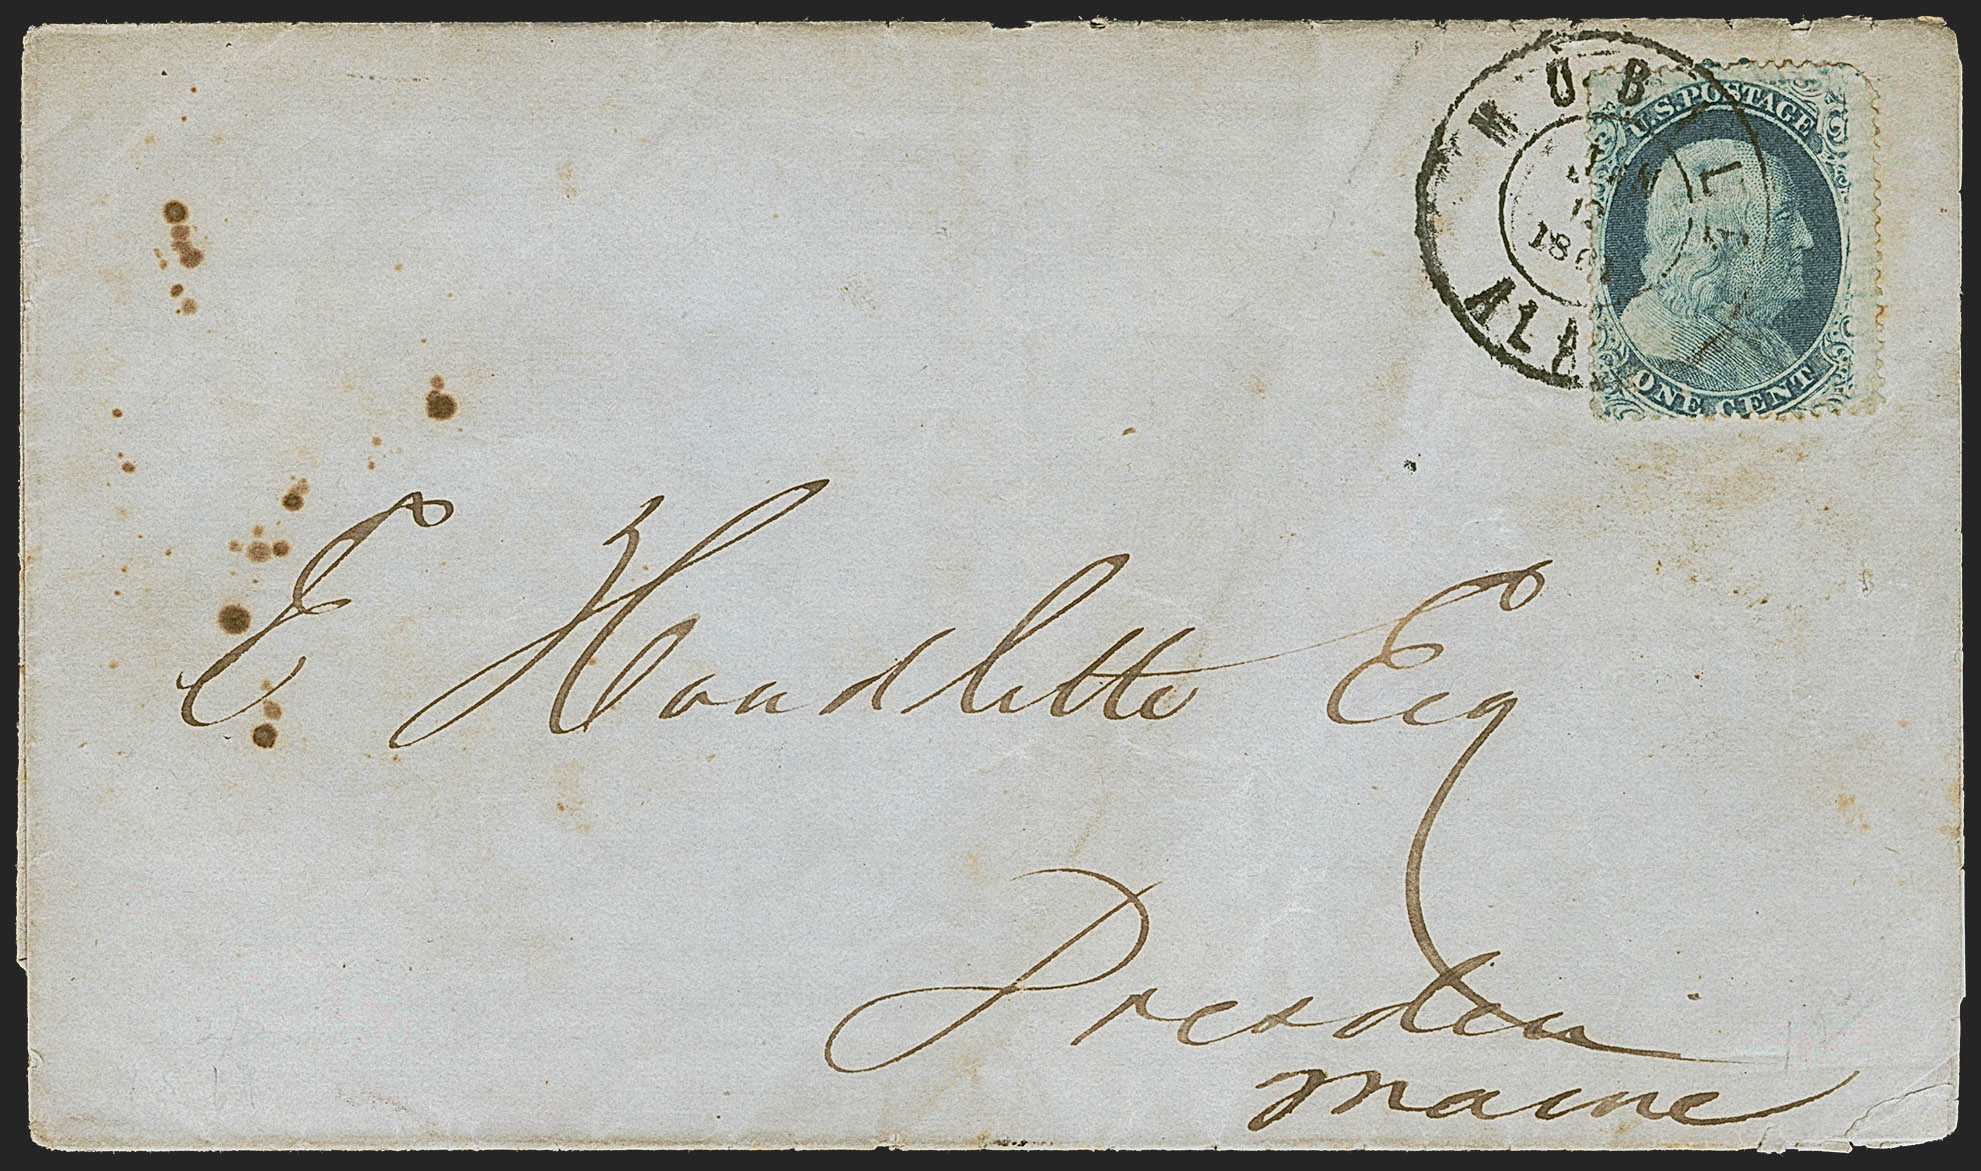 MOBILE
ALA
U.S. POSTAGE
ONE CENT
E Houdlette Esq
Dresden
Maine